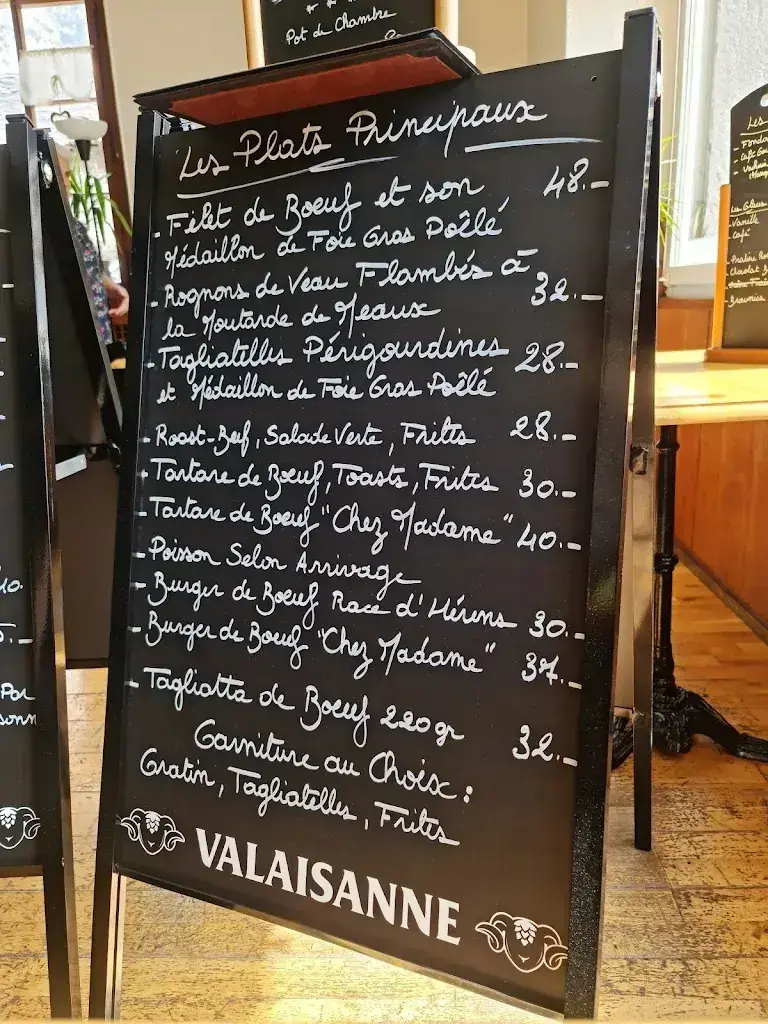 Pot de Chambre
Les Plats Principaux
- Filet de Boeuf et son 48.-
Médaillon de Foie Gras Poêlé
- Rognons de Veau Flambés à
la Moutarde de Meaux 32.-
- Tagliatelles Périgourdines 28.-
et Médaillon de Foie Gras Poêlé
- Roast-Beef, Salade Verte, Frites 28.-
- Tartare de Boeuf, Toasts, Frites 30.-
- Tartare de Boeuf "Chez Madame" 40.-
- Poisson Selon Arrivage
- Burger de Boeuf Race d'Hérens 30.-
- Burger de Boeuf "Chez Madame" 37.-
- Tagliatta de Boeuf 220gr 32.-
Garniture au Choix :
Gratin, Tagliatelles, Frites
VALAISANNE
Les
- Fonda
- Café Go
Les Glaces
- Vanille
- Café
Chocolat
Brownies